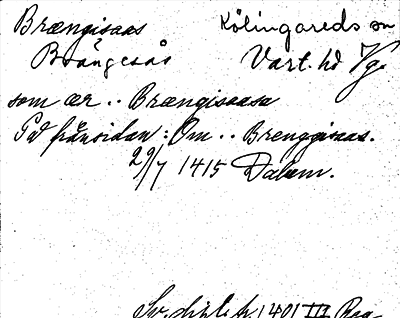 Brængisaas Kölingareds sn
Brängesås Vart. hd Vg.
som ær .. Brængisaasa
På frånsidan: Om .. Brenggisaas.
29/7 1415 Dalem.
Sv. dipl. fr. 1401 III Reg.